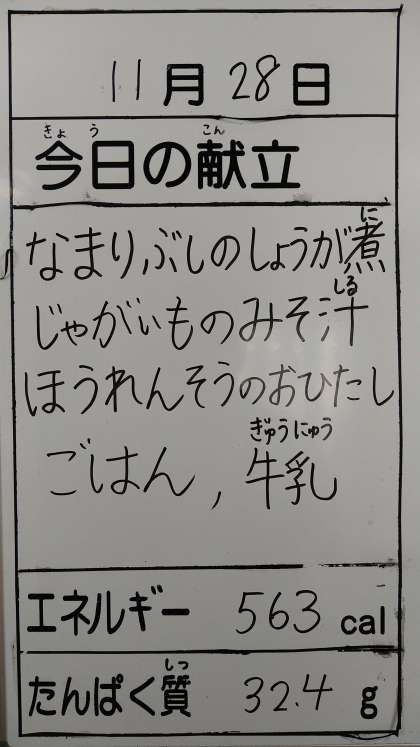 11月28日
今日の献立
なまりぶしのしょうが煮
じゃがいものみそ汁
ほうれんそうのおひたし
ごはん,牛乳
エネルギー 563 cal
たんぱく質 32.4 g